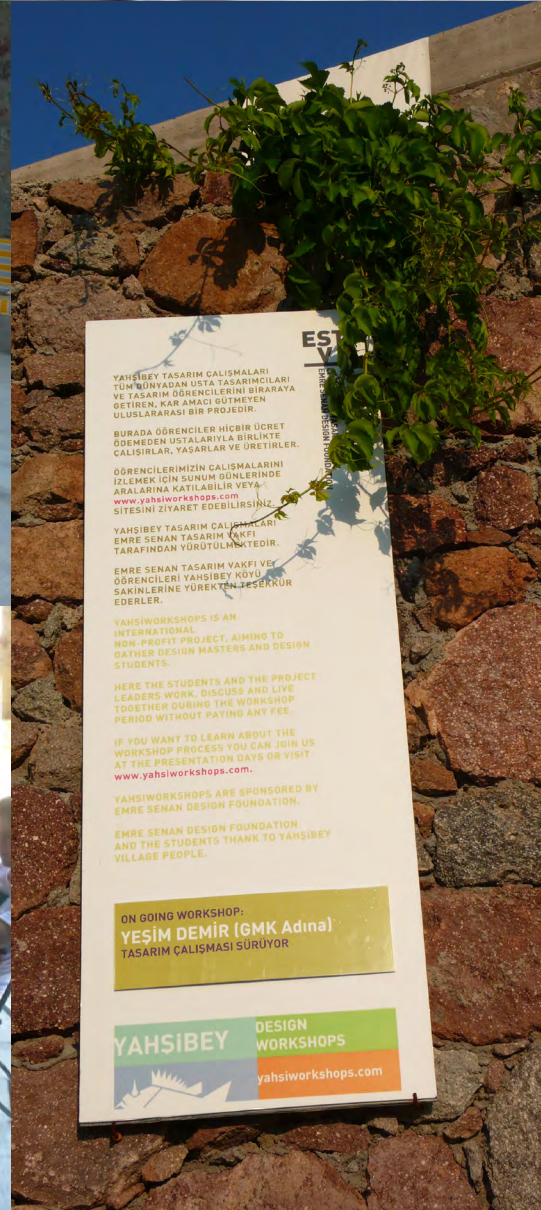 EST
V
EMRE SENAN DESIGN FOUNDATION
YAHŞİBEY TASARIM ÇALIŞMALARI
TÜM DÜNYADAN USTA TASARIMCILARI
VE TASARIM ÖĞRENCİLERİNİ BİRARAYA
GETİREN, KAR AMACI GÜTMEYEN
ULUSLARARASI BİR PROJEDİR.
BURADA ÖĞRENCİLER HİÇBİR ÜCRET
ÖDEMEDEN USTALARIYLA BİRLİKTE
ÇALIŞIRLAR, YAŞARLAR VE ÜRETİRLER.
ÖĞRENCİLERİMİZİN ÇALIŞMALARINI
İZLEMEK İÇİN SUNUM GÜNLERİNDE
ARALARINA KATILABİLİR VEYA
www.yahsiworkshops.com
SİTESİNİ ZİYARET EDEBİLİRSİNİZ.
YAHŞİBEY TASARIM ÇALIŞMALARI
EMRE SENAN TASARIM VAKFI
TARAFINDAN YÜRÜTÜLMEKTEDİR.
EMRE SENAN TASARIM VAKFI VE
ÖĞRENCİLERİ YAHŞİBEY KÖYÜ
SAKİNLERİNE YÜREKTEN TEŞEKKÜR
EDERLER.
YAHSİWORKSHOPS IS AN
INTERNATIONAL
NON-PROFIT PROJECT, AIMING TO
GATHER DESIGN MASTERS AND DESIGN
STUDENTS.
HERE THE STUDENTS AND THE PROJECT
LEADERS WORK, DISCUSS AND LIVE
TOGETHER DURING THE WORKSHOP
PERIOD WITHOUT PAYING ANY FEE.
IF YOU WANT TO LEARN ABOUT THE
WORKSHOP PROCESS YOU CAN JOIN US
AT THE PRESENTATION DAYS OR VISIT
www.yahsiworkshops.com.
YAHSIWORKSHOPS ARE SPONSORED BY
EMRE SENAN DESIGN FOUNDATION.
EMRE SENAN DESIGN FOUNDATION
AND THE STUDENTS THANK TO YAHŞİBEY
VILLAGE PEOPLE.
ON GOING WORKSHOP:
YEŞİM DEMİR (GMK Adına)
TASARIM ÇALIŞMASI SÜRÜYOR
YAHŞİBEY
DESIGN
WORKSHOPS
yahsiworkshops.com